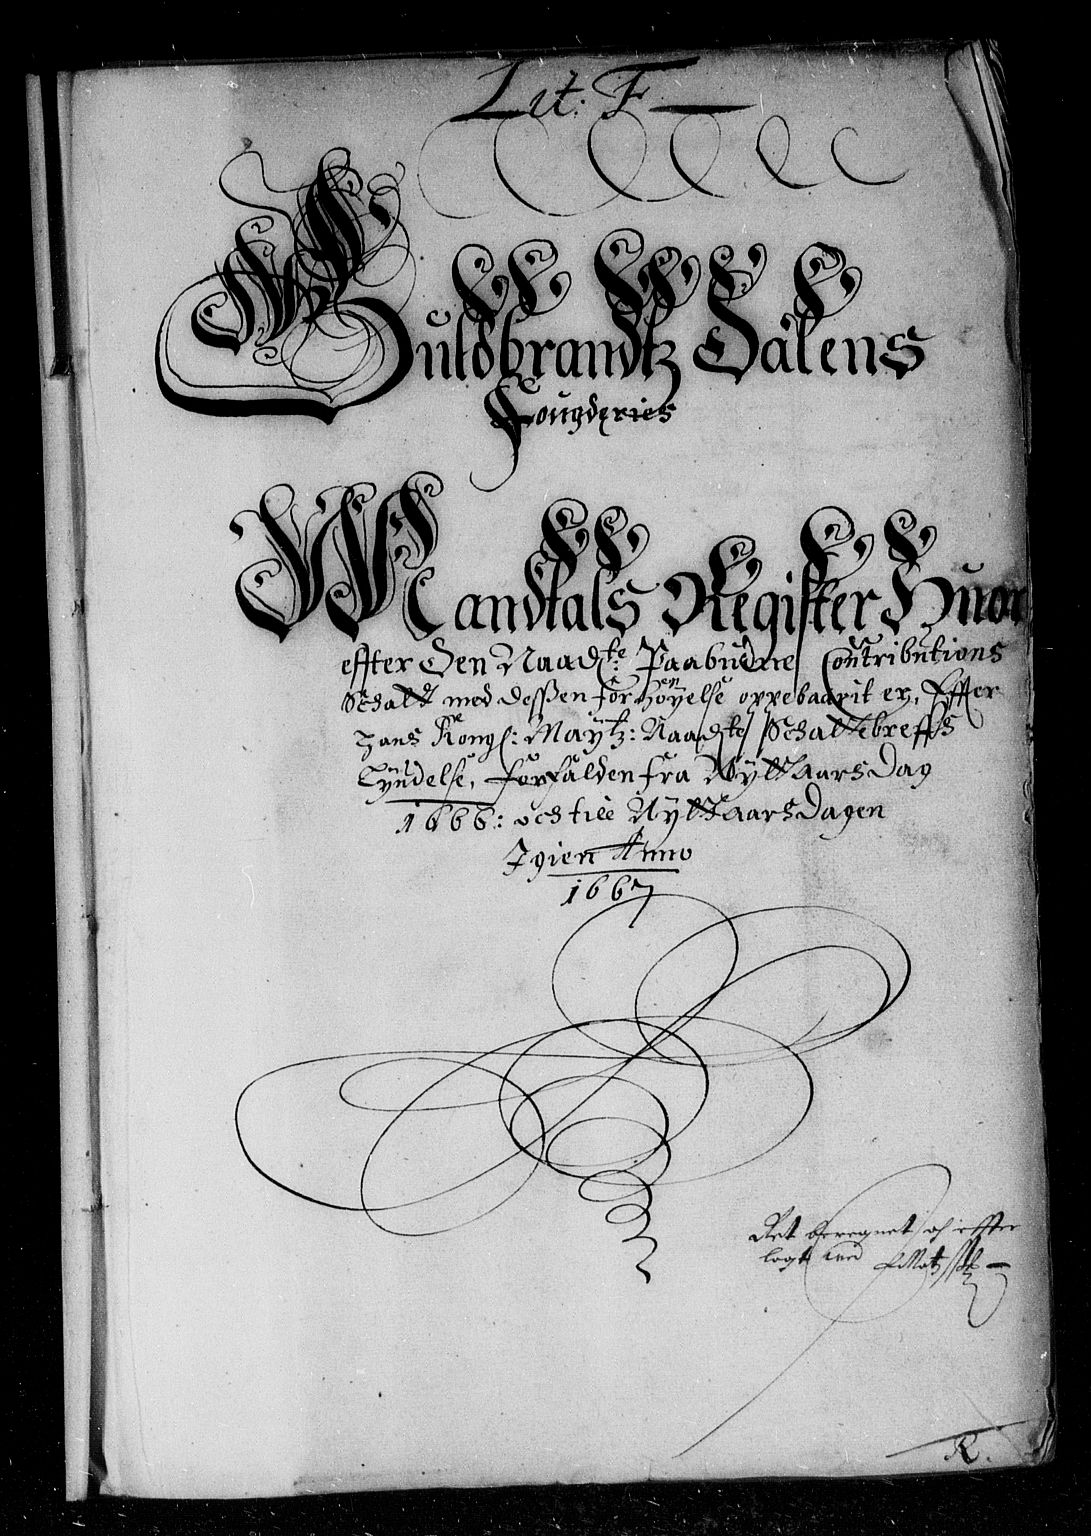 Lit: F
Guldbrandtz Dalens
Fougderies
Mandtals Register Huor
effter Den Naadte: Paabudne Contributions
Schatt med dessen forhøyelse oppebaarit er, Effter
Hans Kongl: Maytz: Naadte Schattebreffs
Lyndelse, forfalden fra Nytt Aars Dag
1666: och till Nytt Aars Dagen
Igien Anno
1667
Ret beregnet och effter
lagt med
R.